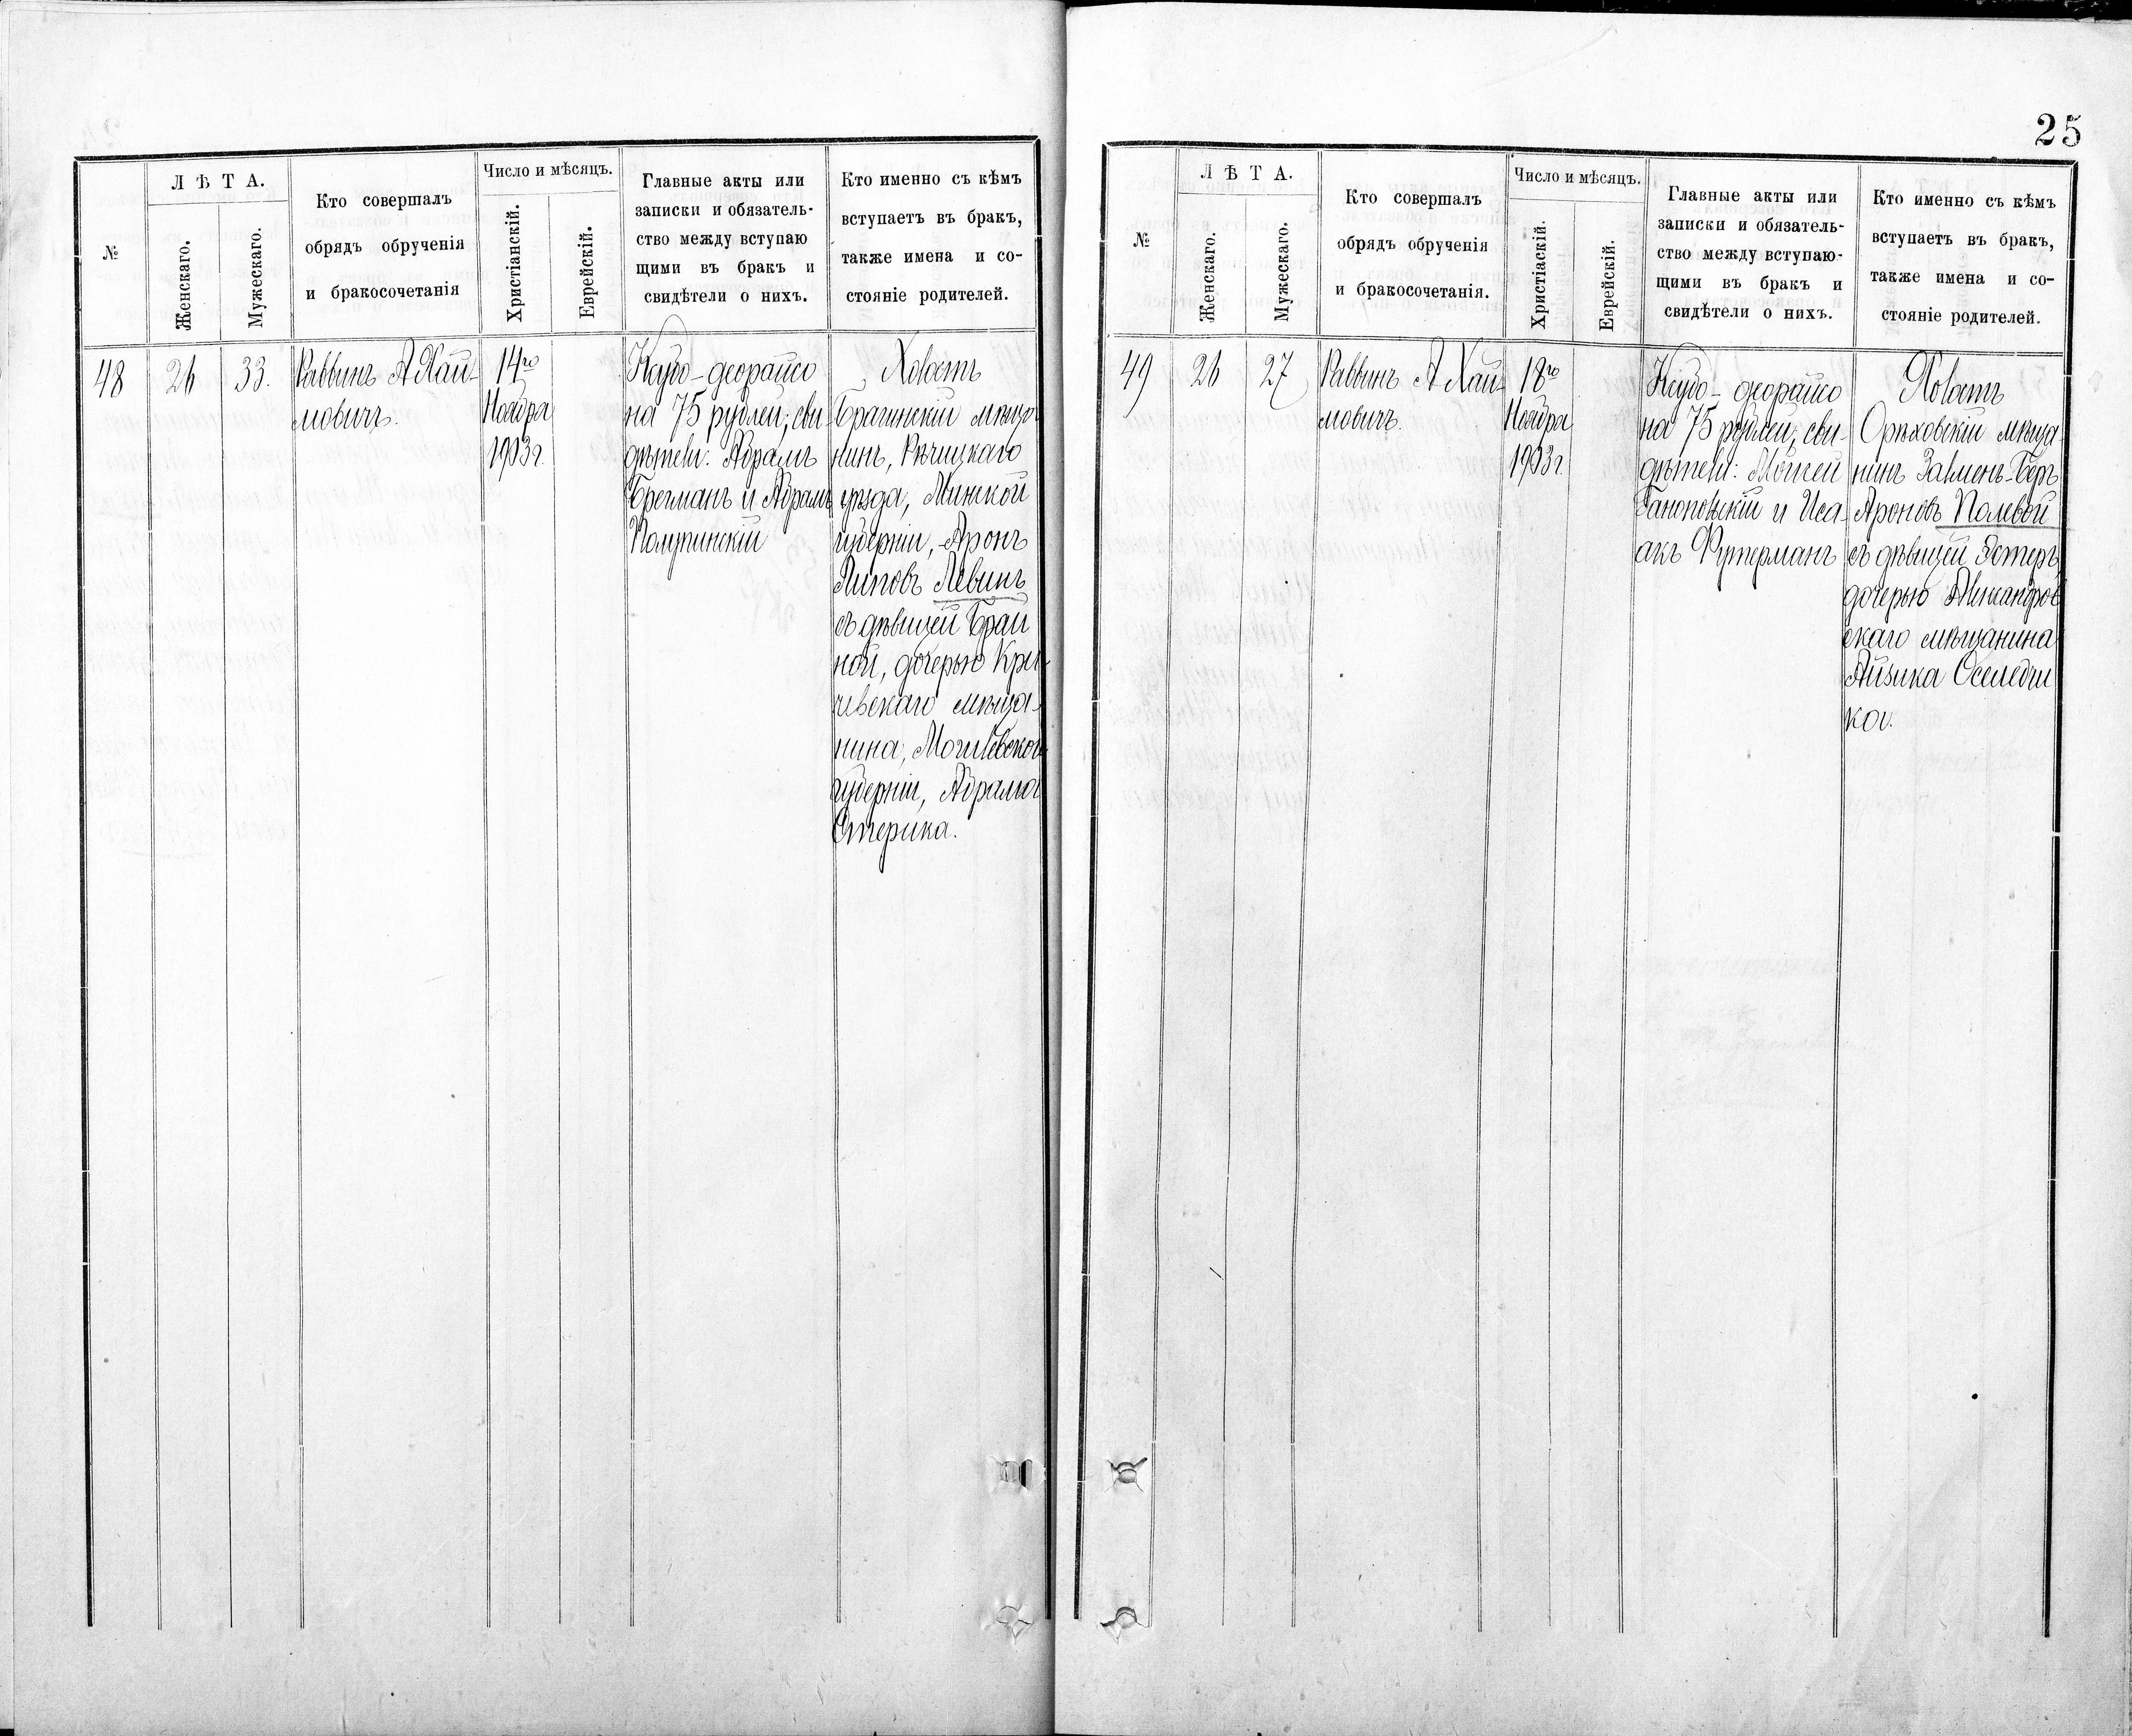 25
№
Л Ѣ Т А.
Женскаго.
Мужескаго.
Кто совершалъ
обрядъ обрученія
и бракосочетанія
Число и мѣсяцъ.
Христіанскій.
Еврейскій.
Главные акты или
записки и обязатель-
ство между вступаю
щими въ бракъ и
свидѣтели о нихъ.
Кто именно съ кѣмъ
вступаетъ въ бракъ,
также имена и со-
стояніе родителей.
48
26
33.
Раввинъ А Хай-
мовичъ.
14го
Ноября
1903г.
на 75 рублей; сви-
дѣтели: Абрамъ
Брегманъ и Абрамъ
Холастъ
Брагинскій мѣща
нинъ, Рѣчицкаго
уѣзда, Минской
губерніи, Аронъ
Липовъ Левинъ
съ дѣвицей Брай
ной, дочерью Кри-
чевскаго мѣща-
нина, Могилевской
губерніи, Абрама
№
Л Ѣ Т А.
Женскаго.
Мужескаго.
Кто совершалъ
обрядъ обрученія
и бракосочетанія.
Число и мѣсяцъ.
Христіаскій.
Еврейскій.
Главные акты или
записки и обязатель-
ство между вступаю-
щими въ бракъ и
свидѣтели о нихъ.
Кто именно съ кѣмъ
вступаетъ въ бракъ,
также имена и со-
стояніе родителей.
49
26
27
Раввинъ А Хай-
мовичъ.
18го
Ноября
1903г.
на 75 рублей; сви-
дѣтели: Мойсей
и Иса-
акъ Футерманъ
Холастъ
Орѣховскій мѣща-
нинъ Залменъ-Беръ
Ароновъ Полевой
съ дѣвицей Эстеръ,
дочерью Александров
скаго мѣщанина
Айзика Оселедчи
ка.